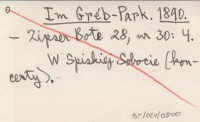 Im Greb-Park. 1890.
— Zipser Bote 28, nr 30: 4.
W Spiskiej Sobocie (kon-
certy).-